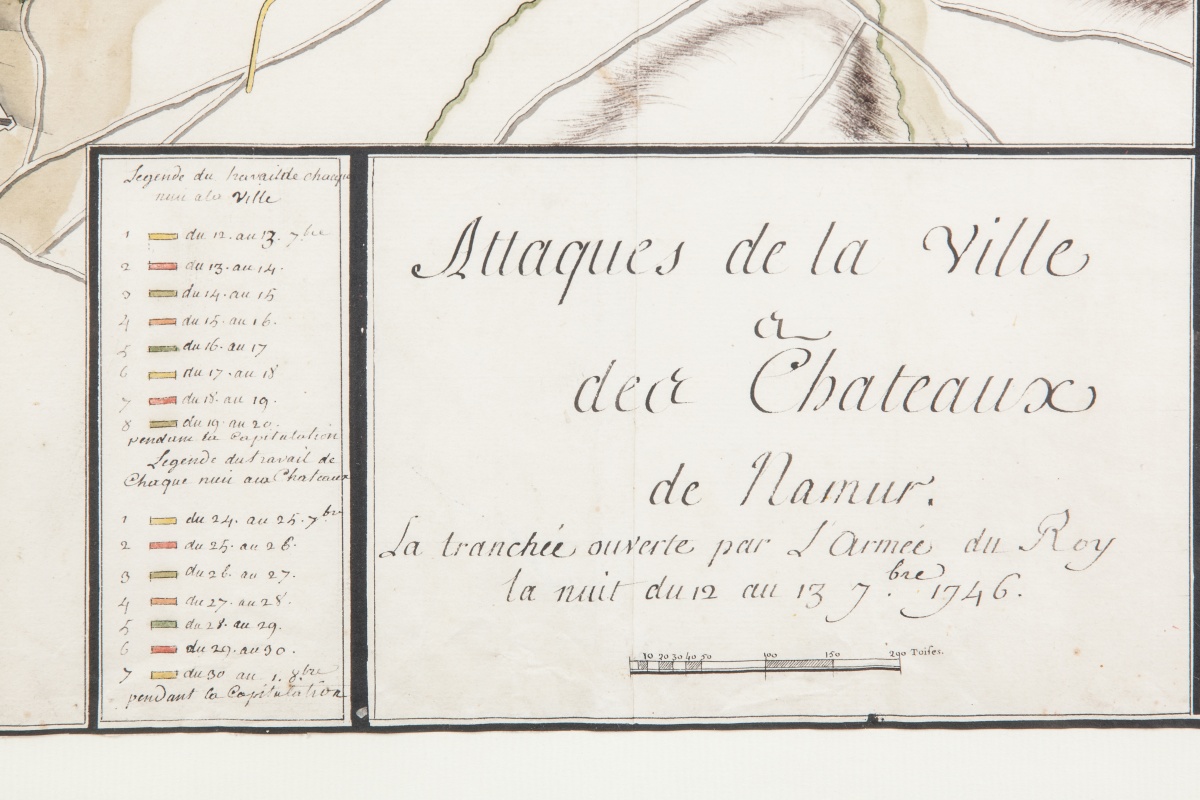 Legende du travail de chacque
nuit a la Ville
1 du 12. au 13. 7.bre
2 du 13. au 14.
3 du 14. au 15
4 du 15. au 16.
5 du 16. au 17
6 du 17. au 18
7 du 18. au 19.
8 du 19. au 20.
pendant la Capitulation
Legende du travail de
Chaque nuit aux Chateaux
1 du 24. au 25. 7.bre
2 du 25. au 26.
3 du 26. au 27.
4 du 27. au 28.
5 du 28. au 29.
6 du 29. au 30.
7 du 30 au 1. 8.bre
pendant la Capitulation
Attaques de la Ville
&
des Chateaux
de Namur.
La tranchée ouverte par L'Armée du Roy
la nuit du 12 au 13 7.bre 1746.
10 20 30 40 50 100 150 200 Toises.